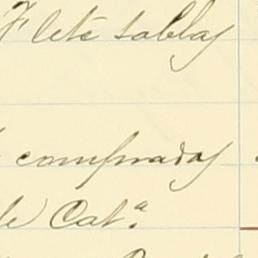 Flete tablas
comprados
de Catª.